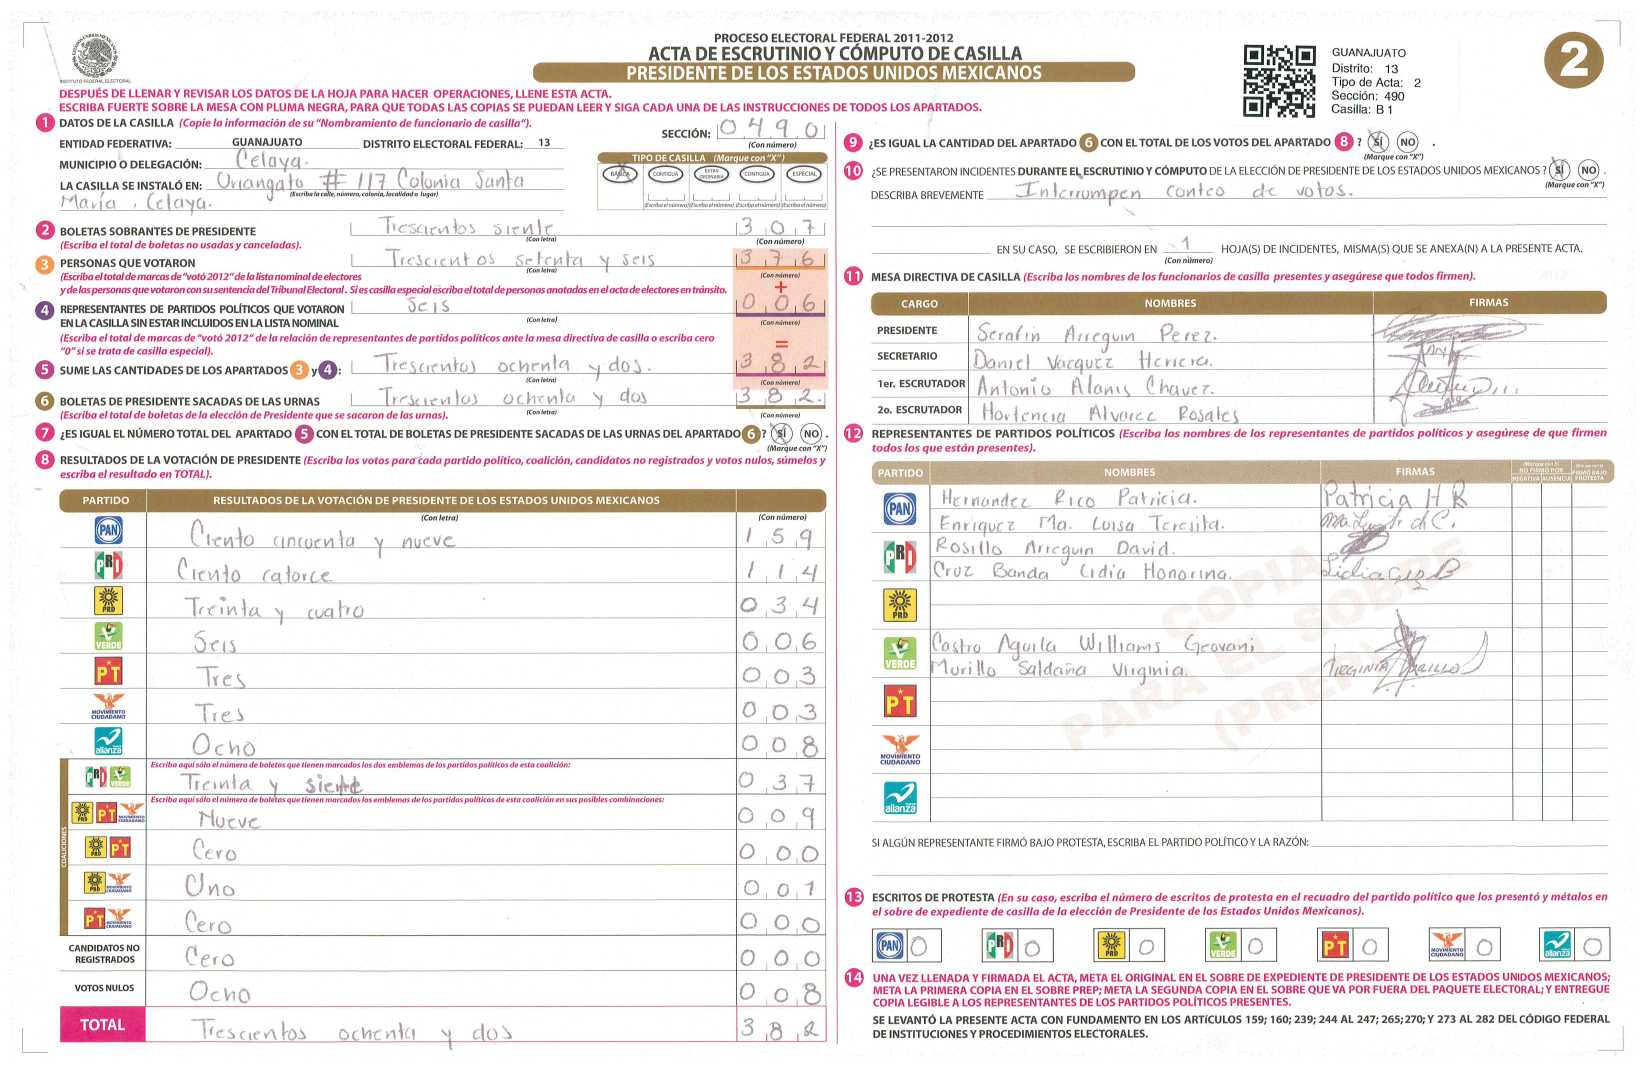 PROCESO ELECTORAL FEDERAL 2011-2012
ACTA DE ESCRUTINIO Y CÓMPUTO DE CASILLA
PRESIDENTE DE LOS ESTADOS UNIDOS MEXICANOS
INSTITUTO FEDERAL ELECTORAL
GUANAJUATO
Distrito: 13
Tipo de Acta: 2
Sección: 490
Casilla: B 1
2
DESPUÉS DE LLENAR Y REVISAR LOS DATOS DE LA HOJA PARA HACER OPERACIONES, LLENE ESTA ACTA.
ESCRIBA FUERTE SOBRE LA MESA CON PLUMA NEGRA, PARA QUE TODAS LAS COPIAS SE PUEDAN LEER Y SIGA CADA UNA DE LAS INSTRUCCIONES DE TODOS LOS APARTADOS.
1 DATOS DE LA CASILLA (Copie la información de su "Nombramiento de funcionario de casilla").
SECCIÓN: 0490
(Con número)
ENTIDAD FEDERATIVA: GUANAJUATO DISTRITO ELECTORAL FEDERAL: 13
MUNICIPIO O DELEGACIÓN: Celaya.
LA CASILLA SE INSTALÓ EN: Uriangato # 117 Colonia Santa
(Escriba la calle, número, colonia, localidad o lugar)
María, Celaya.
TIPO DE CASILLA (Marque con "X")
BÁSICA CONTIGUA EXTRAORDINARIA CONTIGUA ESPECIAL
(Escriba el número) (Escriba el número) (Escriba el número) (Escriba el número)
2 BOLETAS SOBRANTES DE PRESIDENTE Trescientos siente 307
(Escriba el total de boletas no usadas y canceladas). (Con letra) (Con número)
3 PERSONAS QUE VOTARON Trescientos setenta y seis 376
(Escriba el total de marcas de "votó 2012" de la lista nominal de electores (Con letra) (Con número)
y de las personas que votaron con su sentencia del Tribunal Electoral. Si es casilla especial escriba el total de personas anotadas en el acta de electores en tránsito. +
4 REPRESENTANTES DE PARTIDOS POLÍTICOS QUE VOTARON Seis 006
EN LA CASILLA SIN ESTAR INCLUIDOS EN LA LISTA NOMINAL (Con letra) (Con número)
(Escriba el total de marcas de "votó 2012" de la relación de representantes de partidos políticos ante la mesa directiva de casilla o escriba cero
"0" si se trata de casilla especial). =
5 SUME LAS CANTIDADES DE LOS APARTADOS 3 y 4: Trescientos ochenta y dos. 382
(Con letra) (Con número)
6 BOLETAS DE PRESIDENTE SACADAS DE LAS URNAS Trescientos ochenta y dos 382.
(Escriba el total de boletas de la elección de Presidente que se sacaron de las urnas). (Con letra) (Con número)
7 ¿ES IGUAL EL NÚMERO TOTAL DEL APARTADO 5 CON EL TOTAL DE BOLETAS DE PRESIDENTE SACADAS DE LAS URNAS DEL APARTADO 6? SÍ NO.
(Marque con "X")
8 RESULTADOS DE LA VOTACIÓN DE PRESIDENTE (Escriba los votos para cada partido político, coalición, candidatos no registrados y votos nulos, súmelos y
escriba el resultado en TOTAL).
PARTIDO RESULTADOS DE LA VOTACIÓN DE PRESIDENTE DE LOS ESTADOS UNIDOS MEXICANOS
(Con letra) (Con número)
PAN Ciento cincuenta y nueve 159
PRI Ciento catorce 114
PRD Treinta y cuatro 034
VERDE Seis 006
PT Tres 003
MOVIMIENTO CIUDADANO Tres 003
alianza Ocho 008
COALICIONES
Escriba aquí sólo el número de boletas que tienen marcados los dos emblemas de los partidos políticos de esta coalición:
PRI VERDE Treinta y siente 037
Escriba aquí sólo el número de boletas que tienen marcados los emblemas de los partidos políticos de esta coalición en sus posibles combinaciones:
PRD PT MOVIMIENTO CIUDADANO Nueve 009
PRD PT Cero 000
PRD MOVIMIENTO CIUDADANO Uno 001
PT MOVIMIENTO CIUDADANO Cero 000
CANDIDATOS NO REGISTRADOS Cero 000
VOTOS NULOS Ocho 008
TOTAL Trescientos ochenta y dos 382
9 ¿ES IGUAL LA CANTIDAD DEL APARTADO 6 CON EL TOTAL DE LOS VOTOS DEL APARTADO 8? SÍ NO.
(Marque con "X")
10 ¿SE PRESENTARON INCIDENTES DURANTE EL ESCRUTINIO Y CÓMPUTO DE LA ELECCIÓN DE PRESIDENTE DE LOS ESTADOS UNIDOS MEXICANOS? SÍ NO.
(Marque con "X")
DESCRIBA BREVEMENTE Interrumpen conteo de votos.
EN SU CASO, SE ESCRIBIERON EN 1 HOJA(S) DE INCIDENTES, MISMA(S) QUE SE ANEXA(N) A LA PRESENTE ACTA.
(Con número)
11 MESA DIRECTIVA DE CASILLA (Escriba los nombres de los funcionarios de casilla presentes y asegúrese que todos firmen).
CARGO NOMBRES FIRMAS
PRESIDENTE Serafin Arreguin Perez.
SECRETARIO Daniel Vazquez Herrera.
1er. ESCRUTADOR Antonio Alanis Chavez.
2o. ESCRUTADOR Hortencia Alvarez Rosales
12 REPRESENTANTES DE PARTIDOS POLÍTICOS (Escriba los nombres de los representantes de partidos políticos y asegúrese de que firmen
todos los que están presentes).
PARTIDO NOMBRES FIRMAS
NO FIRMÓ POR NEGATIVA AUSENCIA FIRMÓ BAJO PROTESTA
PAN Hernandez Rico Patricia. Patricia H R
Enriquez Ma. Luisa Teresita.
PRI Rosillo Arreguin David.
Cruz Banda Lidia Honorina. Lidia Cruz B
PRD
VERDE Castro Aguila Williams Geovani
Murillo Saldaña Virginia. VIRGINIA MURILLO
PT
MOVIMIENTO CIUDADANO
alianza
COPIA PARA EL SOBRE (PREP)
SI ALGÚN REPRESENTANTE FIRMÓ BAJO PROTESTA, ESCRIBA EL PARTIDO POLÍTICO Y LA RAZÓN:
13 ESCRITOS DE PROTESTA (En su caso, escriba el número de escritos de protesta en el recuadro del partido político que los presentó y métalos en
el sobre de expediente de casilla de la elección de Presidente de los Estados Unidos Mexicanos).
PAN 0 PRI 0 PRD 0 VERDE 0 PT 0 MOVIMIENTO CIUDADANO 0 alianza 0
14 UNA VEZ LLENADA Y FIRMADA EL ACTA, META EL ORIGINAL EN EL SOBRE DE EXPEDIENTE DE PRESIDENTE DE LOS ESTADOS UNIDOS MEXICANOS;
META LA PRIMERA COPIA EN EL SOBRE PREP; META LA SEGUNDA COPIA EN EL SOBRE QUE VA POR FUERA DEL PAQUETE ELECTORAL; Y ENTREGUE
COPIA LEGIBLE A LOS REPRESENTANTES DE LOS PARTIDOS POLÍTICOS PRESENTES.
SE LEVANTÓ LA PRESENTE ACTA CON FUNDAMENTO EN LOS ARTÍCULOS 159; 160; 239; 244 AL 247; 265; 270; Y 273 AL 282 DEL CÓDIGO FEDERAL
DE INSTITUCIONES Y PROCEDIMIENTOS ELECTORALES.